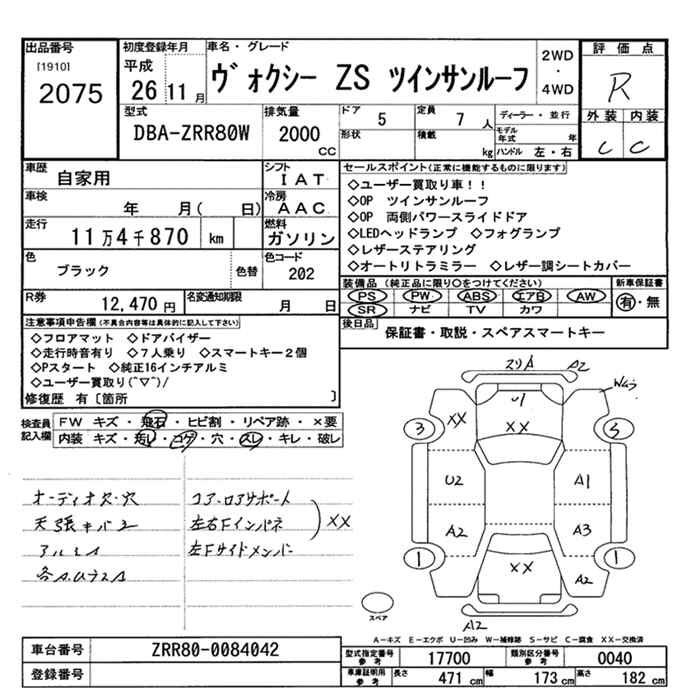 出品番号
[1910]
2075
初度登録年月
平成
26 11月
車名・グレード
ヴォクシー ZS ツインサンルーフ
2WD
・
4WD
評価点
R
外装 内装
C C
型式
DBA-ZRR80W
排気量
2000
CC
ドア
5
定員
7 人
ディーラー・並行
形状
積載
kg
モデル
年式 年
ハンドル 左・右
車歴
自家用
シフト
IAT
車検
年 月( 日)
冷房
AAC
走行
11万4千870 km
燃料
ガソリン
色
ブラック
色替
色コード
202
R券
12,470円
名変通知期限
月 日
セールスポイント(正常に機能するものに限ります)
◇ユーザー買取り車!!
◇OP ツインサンルーフ
◇OP 両側パワースライドドア
◇LEDヘッドランプ ◇フォグランプ
◇レザーステアリング
◇オートリトラミラー ◇レザー調シートカバー
装備品(純正品に限り○をつけてください)
PS PW ABS エアB AW
SR ナビ TV カワ
新車保証書
有・無
後日品
保証書・取説・スペアスマートキー
注意事項申告欄(不具合内容等は具体的に記入して下さい)
◇フロアマット ◇ドアバイザー
◇走行時音有り ◇7人乗り ◇スマートキー2個
◇Pスタート ◇純正16インチアルミ
◇ユーザー買取り(^▽^)/
修復歴 有〔箇所 〕
検査員
記入欄
FW キズ・飛石・ヒビ割・リペア跡・×要
内装 キズ・汚レ・コゲ・穴・スレ・キレ・破レ
オーディオ欠・穴
天張キバミ
アルミA
各A.Uラスト
コア・ロアサポート
左右Fインパネ
左Fサイドメンバー
XX
スリA
A2
W3
U1
XX
XX
3
5
U2
A1
A2
A3
1
1
XX
A2
A2
スペア
A-キズ E-エクボ U-凹み W-補修跡 S-サビ C-腐食 XX-交換済
車台番号
ZRR80-0084042
登録番号
型式指定番号
参考
17700
類別区分番号
参考
0040
車庫証明用
参考
長さ
471 cm
幅
173 cm
高さ
182 cm